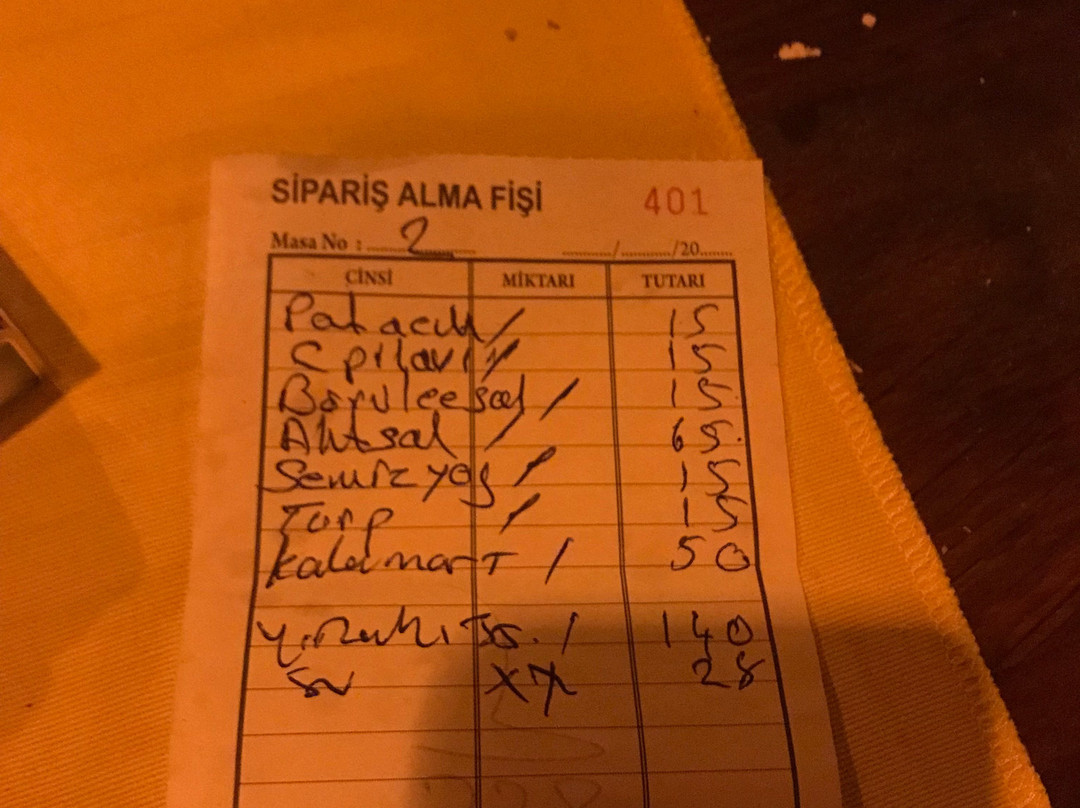 SİPARİŞ ALMA FİŞİ 401
Masa No : 2 ......../......../20........
CİNSİ MİKTARI TUTARI
Pat acılı / 15
15
Börülce sal / 15
Aht sal / 65
Semiz yoğ / 15
Turp / 15
kalamar T / 50
y. Rakı 35. / 140
Su XX 28